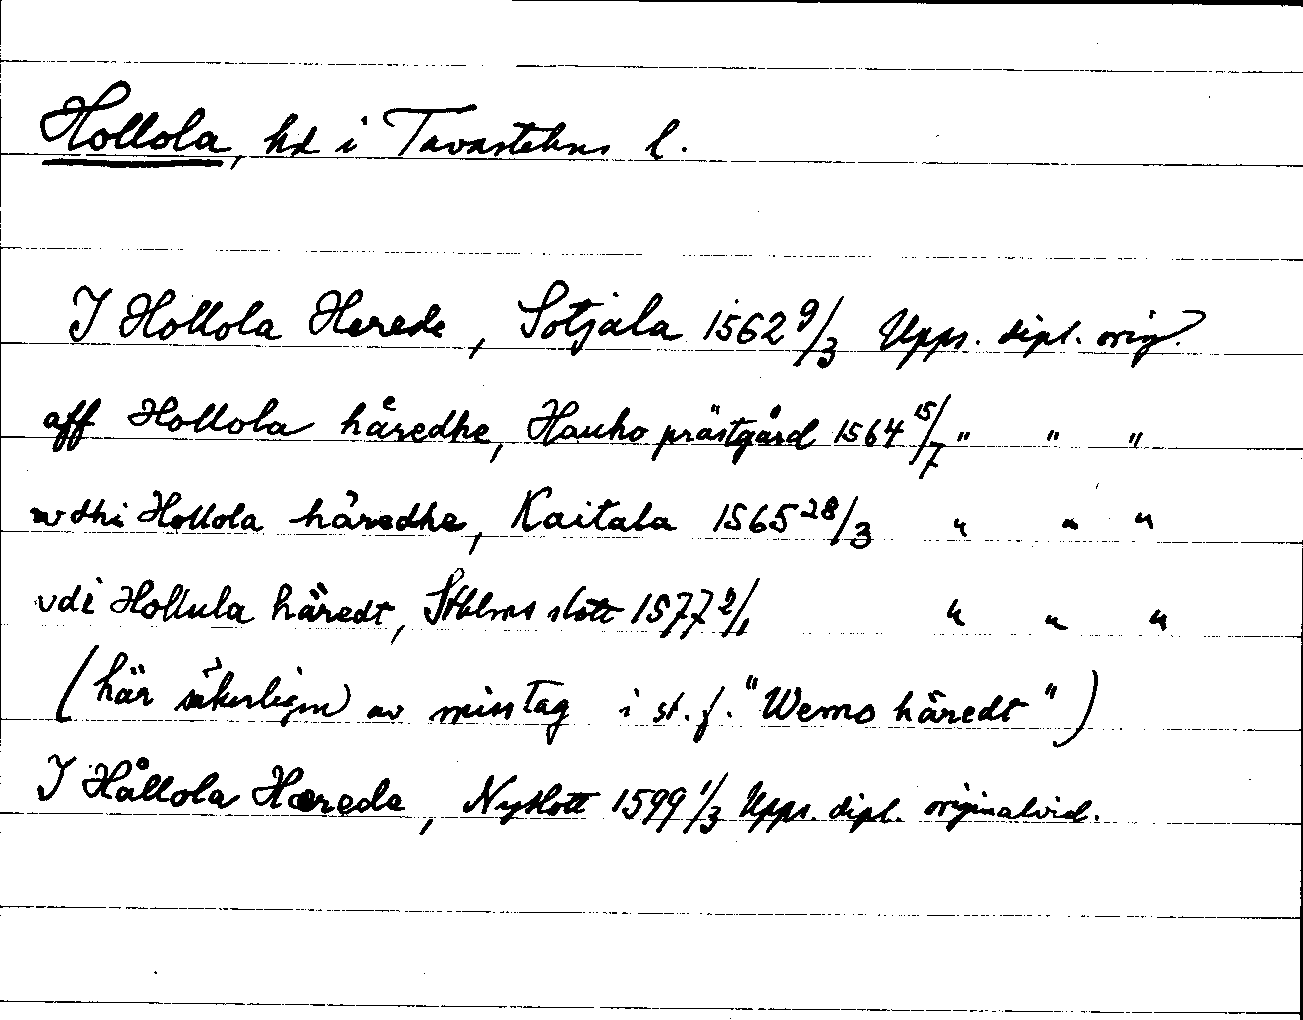 Hollola, hd i Tavastehus l.
I Hollola Herede, Sotjala 1562 9/3 Upps. dipl. orig.
aff Hollola håredhe, Hauho prästgård 1564 15/7 " " "
wthi Hollola häredhe, Kaitala 1565 28/3 " " "
vdi Hollula häredt, Sthlms slott 1577 2/1 " " "
(här säkerligen av misstag i st. f. "Wemo häredt")
I Hållola Hærede, Nyslott 1599 1/3 Upps. dipl. originalvid.